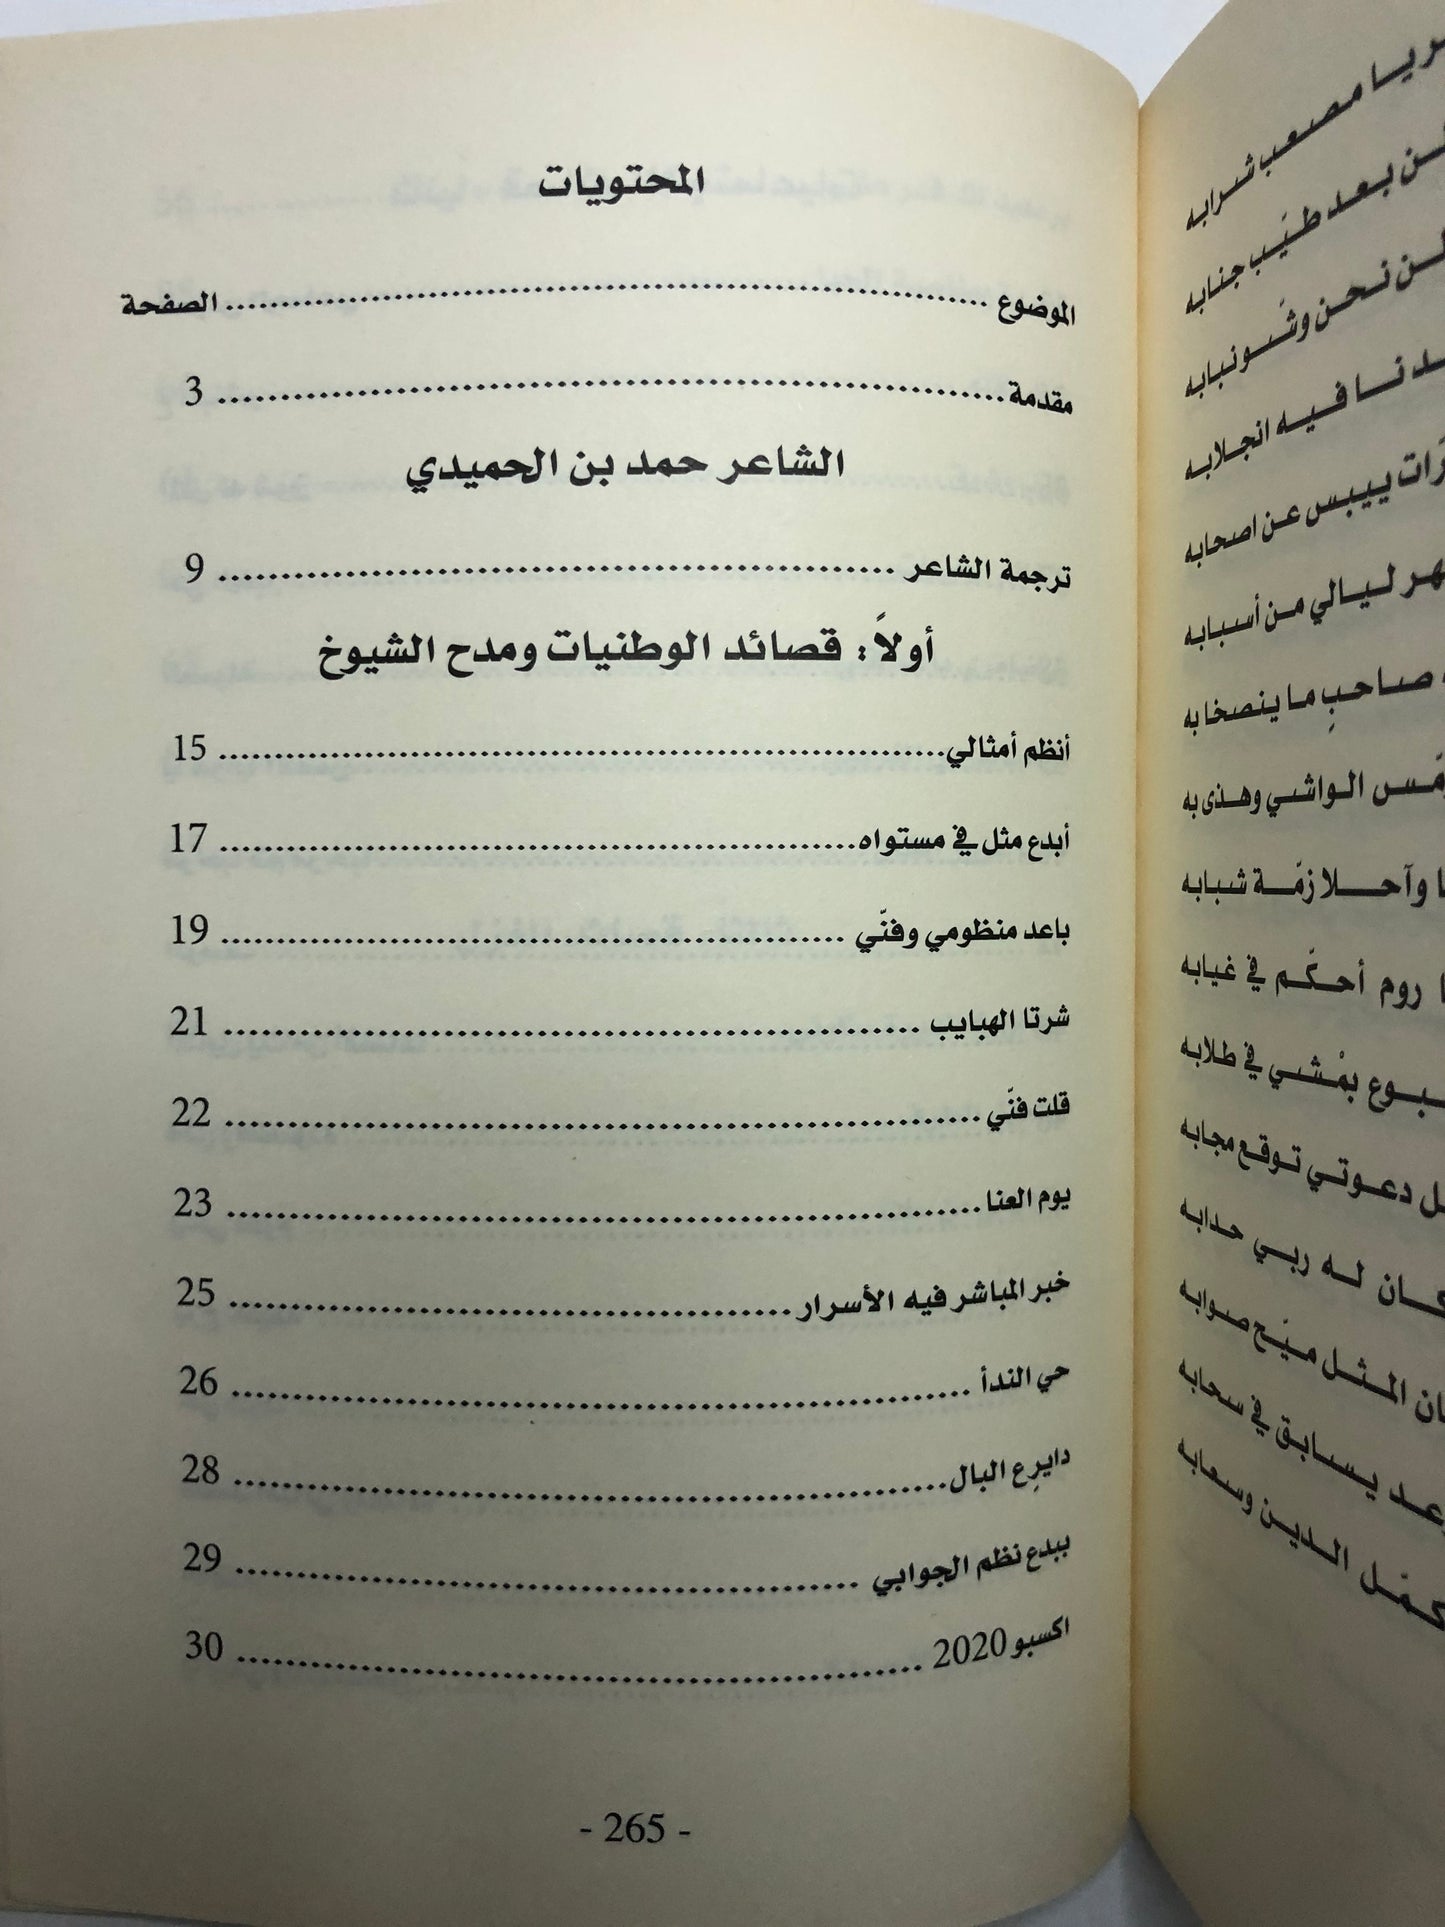 المحتويات
الموضوع ........ الصفحة
مقدمة ........ 3
الشاعر حمد بن الحميدي
ترجمة الشاعر ........ 9
أولاً: قصائد الوطنيات ومدح الشيوخ
أنظم أمثالي ........ 15
أبدع مثل في مستواه ........ 17
باعد منظومي وفنّي ........ 19
شرتا الهبايب ........ 21
قلت فنّي ........ 22
يوم العنا ........ 23
خبر المباشر فيه الأسرار ........ 25
حي الندأ ........ 26
دايرِع البال ........ 28
ببدع نظم الجوابي ........ 29
اكسبو 2020 ........ 30
- 265 -
مصعب شرابه
بعد طيّب جنابه
نحن وشونبابه
فيه انجلابه
ييبس عن اصحابه
ليالي من أسبابه
صاحبٍ ما ينصخابه
الواشي وهذى به
وآحلا زمّة شبابه
روم أحكّم في غيابه
بمْشي في طلابه
دعوتي توقع مجابه
له ربي حدابه
المثل ميّح صوابه
يسابق في سحابه
الدين وسعابه